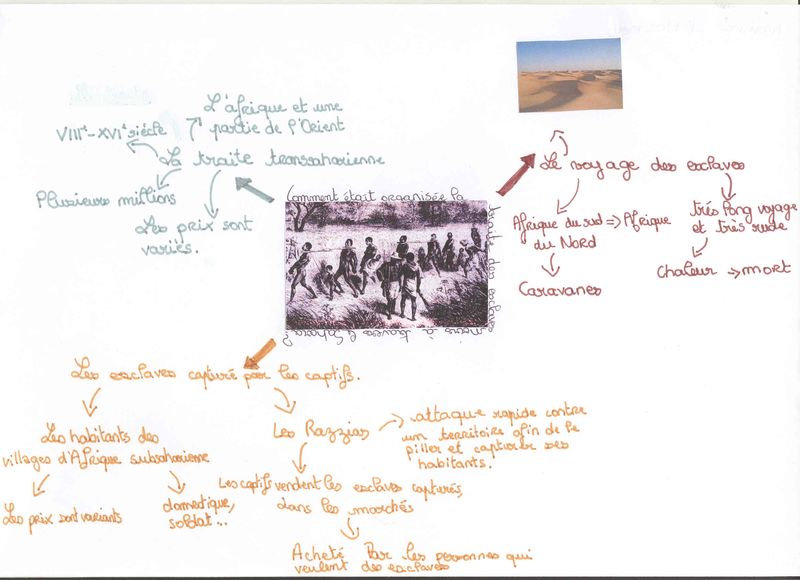 L'afrique et une
partie de l'Orient
VIIIe-XVIe siècle
La traite transsaharienne
Plusieurs millions
Les prix sont
variés.
Comment était organisée la
traite des esclaves
noirs à travers le Sahara?
Le voyage des esclaves
Afrique du sud => Afrique
du Nord
Caravanes
très long voyage
et très rude
Chaleur -> mort
Les esclaves capturé par les captifs.
Les habitants des
villages d'Afrique subsaharienne
Les prix sont variants
domestique,
soldat...
Les Razzias
attaque rapide contre
un territoire afin de le
piller et capturer ses
habitants.
Les captifs vendent les esclaves capturés,
dans les marchés
Acheté Par les personnes qui
veulent des esclaves